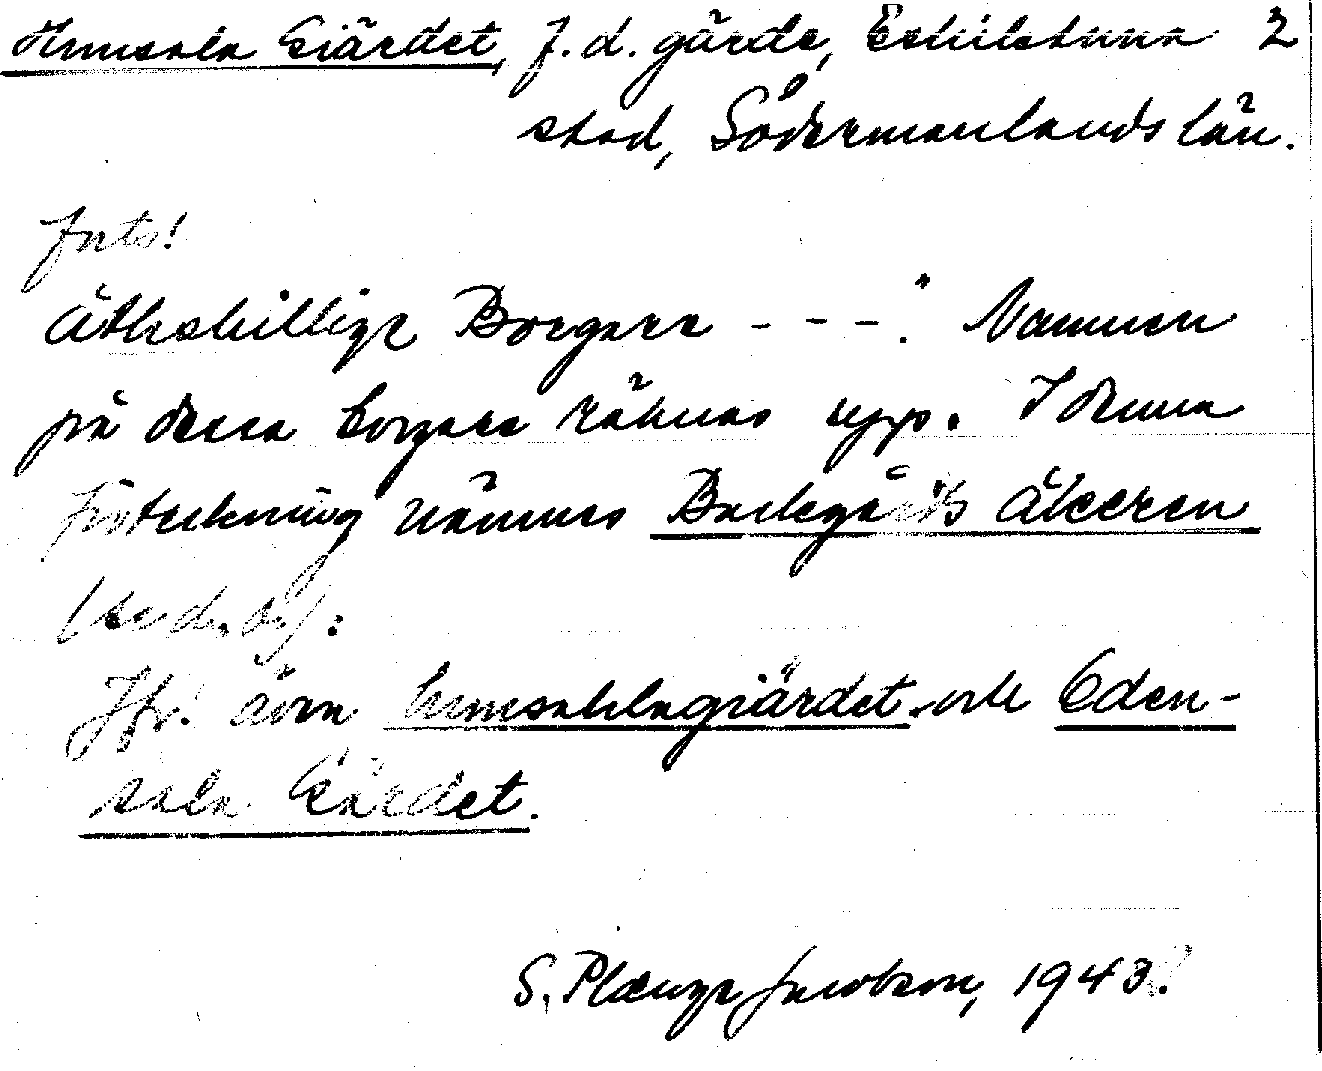 Humsala Giärdet, f.d. gärde, Eskilstuna 2
stad, Södermanlands län.
forts!
Åthskillige Borgare - - -". Namnen
på dessa borgare räknas upp. I denna
förteckning nämnes Badegårds Åkeren
(se d. o.):
Jfr. även humsahlagiärdet och Eden-
sala Gärdet.
S. Plænge Jacobson, 1943.